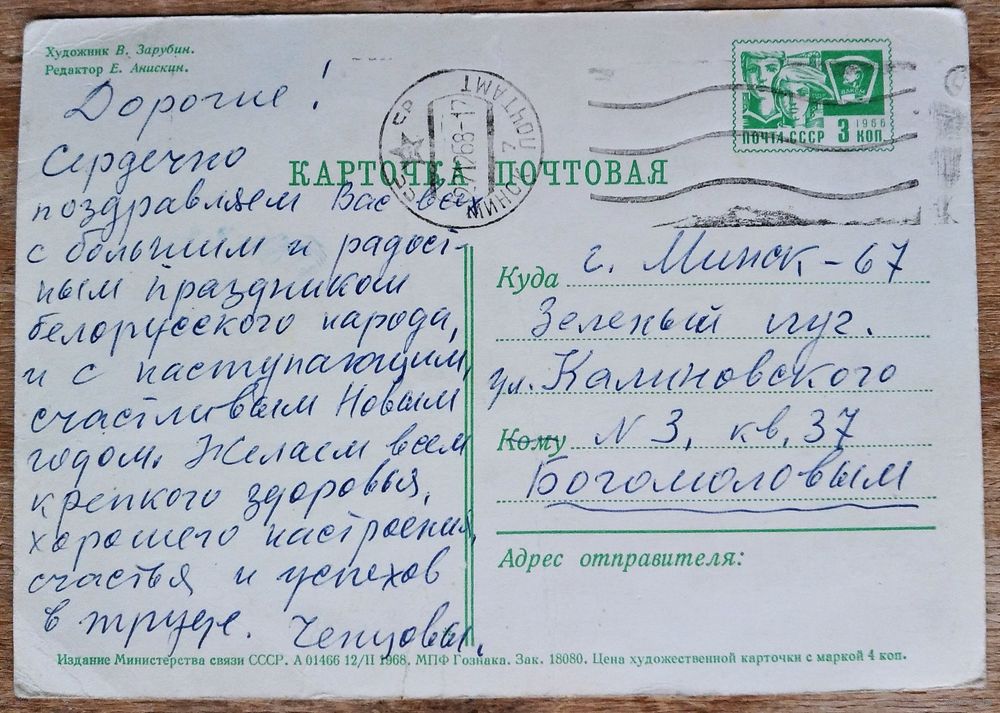 Художник В. Зарубин.
Редактор Е. Анискин.
Дорогие!
Сердечно
поздравляем Вас всех
с большим и радост-
ным праздником
белорусского народа,
и с наступающим,
счастливым Новым
годом. Желаем всем
крепкого здоровья,
хорошего настроения,
счастья и успехов
в труде. Чепцовы.
КАРТОЧКА ПОЧТОВАЯ
МИНСК ПОЧТАМТ
ВЛКСМ
1966
ПОЧТА СССР 3 КОП
Куда г. Минск-67
Зеленый луг.
ул. Калиновского
Кому N 3, кв. 37
Богомоловым
Адрес отправителя:
Издание Министерства связи СССР. А 01466 12/II 1968. МПФ Гознака. Зак. 18080. Цена художественной карточки с маркой 4 коп.